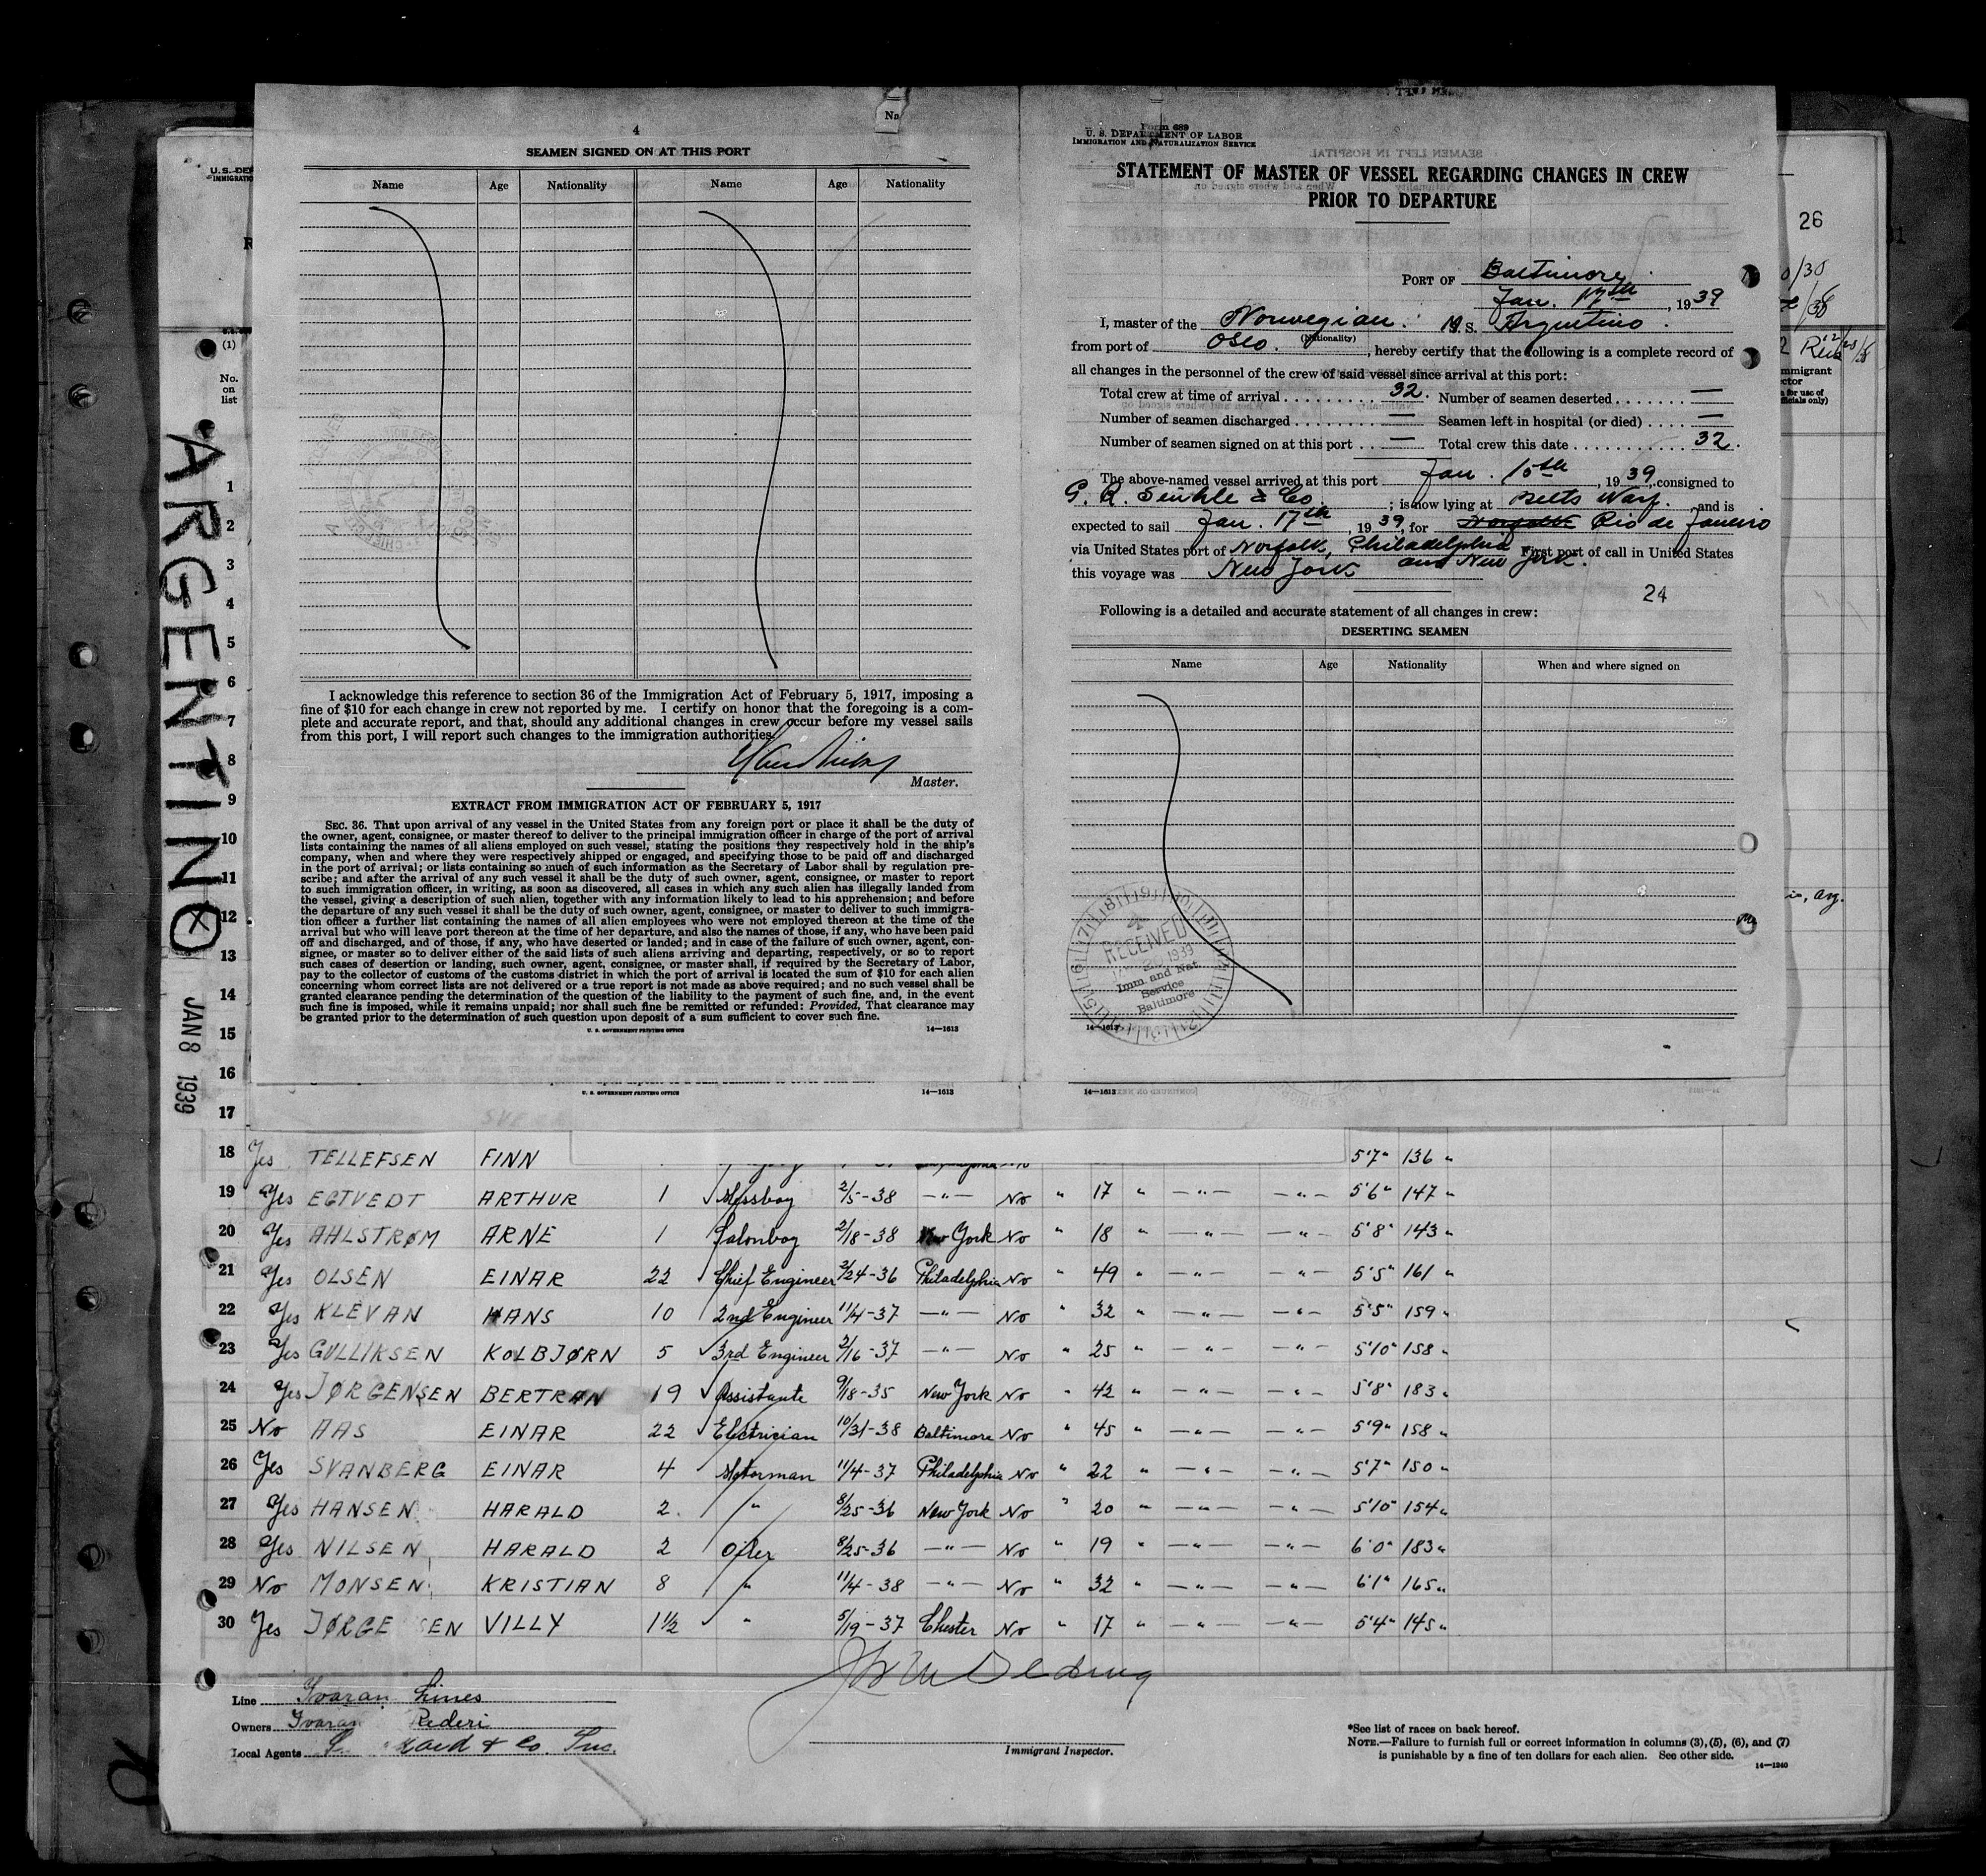 ARGENTINO
X
JAN 8 1939
4
No
SEAMEN SIGNED ON AT THIS PORT
Name Age Nationality Name Age Nationality
I acknowledge this reference to section 36 of the Immigration Act of February 5, 1917, imposing a
fine of $10 for each change in crew not reported by me. I certify on honor that the foregoing is a com-
plete and accurate report, and that, should any additional changes in crew occur before my vessel sails
from this port, I will report such changes to the immigration authorities.
Master.
EXTRACT FROM IMMIGRATION ACT OF FEBRUARY 5, 1917
SEC. 36. That upon arrival of any vessel in the United States from any foreign port or place it shall be the duty of
the owner, agent, consignee, or master thereof to deliver to the principal immigration officer in charge of the port of arrival
lists containing the names of all aliens employed on such vessel, stating the positions they respectively hold in the ship's
company, when and where they were respectively shipped or engaged, and specifying those to be paid off and discharged
in the port of arrival; or lists containing so much of such information as the Secretary of Labor shall by regulation pre-
scribe; and after the arrival of any such vessel it shall be the duty of such owner, agent, consignee, or master to report
to such immigration officer, in writing, as soon as discovered, all cases in which any such alien has illegally landed from
the vessel, giving a description of such alien, together with any information likely to lead to his apprehension; and before
the departure of any such vessel it shall be the duty of such owner, agent, consignee, or master to deliver to such immigra-
tion officer a further list containing the names of all alien employees who were not employed thereon at the time of the
arrival but who will leave port thereon at the time of her departure, and also the names of those, if any, who have been paid
off and discharged, and of those, if any, who have deserted or landed; and in case of the failure of such owner, agent, con-
signee, or master so to deliver either of the said lists of such aliens arriving and departing, respectively, or so to report
such cases of desertion or landing, such owner, agent, consignee, or master shall, if required by the Secretary of Labor,
pay to the collector of customs of the customs district in which the port of arrival is located the sum of $10 for each alien
concerning whom correct lists are not delivered or a true report is not made as above required; and no such vessel shall be
granted clearance pending the determination of the question of the liability to the payment of such fine, and, in the event
such fine is imposed, while it remains unpaid; nor shall such fine be remitted or refunded: Provided, That clearance may
be granted prior to the determination of such question upon deposit of a sum sufficient to cover such fine.
U. S. GOVERNMENT PRINTING OFFICE 14—1613
U. S. GOVERNMENT PRINTING OFFICE 14—1613
Form 689
U. S. DEPARTMENT OF LABOR
IMMIGRATION AND NATURALIZATION SERVICE
STATEMENT OF MASTER OF VESSEL REGARDING CHANGES IN CREW
PRIOR TO DEPARTURE
PORT OF Baltimore
Jan. 17th, 1939
I, master of the Norwegian M.S. Argentino.
(Nationality)
from port of Oslo., hereby certify that the following is a complete record of
all changes in the personnel of the crew of said vessel since arrival at this port:
Total crew at time of arrival 32. Number of seamen deserted —
Number of seamen discharged — Seamen left in hospital (or died) —
Number of seamen signed on at this port — Total crew this date 32.
The above-named vessel arrived at this port Jan. 15th, 1939, consigned to
G. R. & Co.; is now lying at and is
expected to sail Jan. 17th 1939, for Norfolk Rio de Janeiro
via United States port of Norfolk, Philadelphia and New York. First port of call in United States
this voyage was New York
24
Following is a detailed and accurate statement of all changes in crew:
DESERTING SEAMEN
Name Age Nationality When and where signed on
RECEIVED
1939
Imm. and Nat.
Service
Baltimore
14—1613
14—1613
26
U. S. DE
IMMIGRATIO
(1)
No.
on
list
1
2
3
4
5
6
7
8
9
10
11
12
13
14
15
16
17
18 Yes TELLEFSEN FINN 5'7" 136 "
19 Yes EGTVEDT ARTHUR 1 Messboy 2/5-38 —"— No " 17 " —"— —"— 5'6" 147 "
20 Yes AHLSTRØM ARNE 1 Salonboy 2/18-38 New York No " 18 " —"— —"— 5'8" 143 "
21 Yes OLSEN EINAR 22 Chief Engineer 2/24-36 Philadelphia No " 49 " —"— —"— 5'5" 161 "
22 Yes KLEVAN HANS 10 2nd Engineer 11/4-37 —"— No " 32 " —"— —"— 5'5" 159 "
23 Yes GULLIKSEN KOLBJØRN 5 3rd Engineer 2/16-37 —"— No " 25 " —"— —"— 5'10" 158 "
24 Yes JØRGENSEN BERTRAN 19 Assistante 9/18-35 New York No " 42 " —"— —"— 5'8" 183 "
25 No AAS EINAR 22 Electrician 10/31-38 Baltimore No " 45 " —"— —"— 5'9" 158 "
26 Yes SVANBERG EINAR 4 Motorman 11/4-37 Philadelphia No " 22 " —"— —"— 5'7" 150 "
27 Yes HANSEN HARALD 2. " 8/25-36 New York No " 20 " —"— —"— 5'10" 154 "
28 Yes NILSEN HARALD 2 Oiler 8/25-36 —"— No " 19 " —"— —"— 6'0" 183 "
29 No MONSEN KRISTIAN 8 " 11/4-38 —"— No " 32 " —"— —"— 6'1" 165 "
30 Yes JØRGE SEN VILLY 1½ " 5/19-37 Chester No " 17 " —"— —"— 5'4" 145 "
Line Ivaran Lines
Owners Ivaran Rederi
Local Agents & Co. Inc.
Immigrant Inspector.
*See list of races on back hereof.
NOTE.—Failure to furnish full or correct information in columns (3), (5), (6), and (7)
is punishable by a fine of ten dollars for each alien. See other side.
14—1240